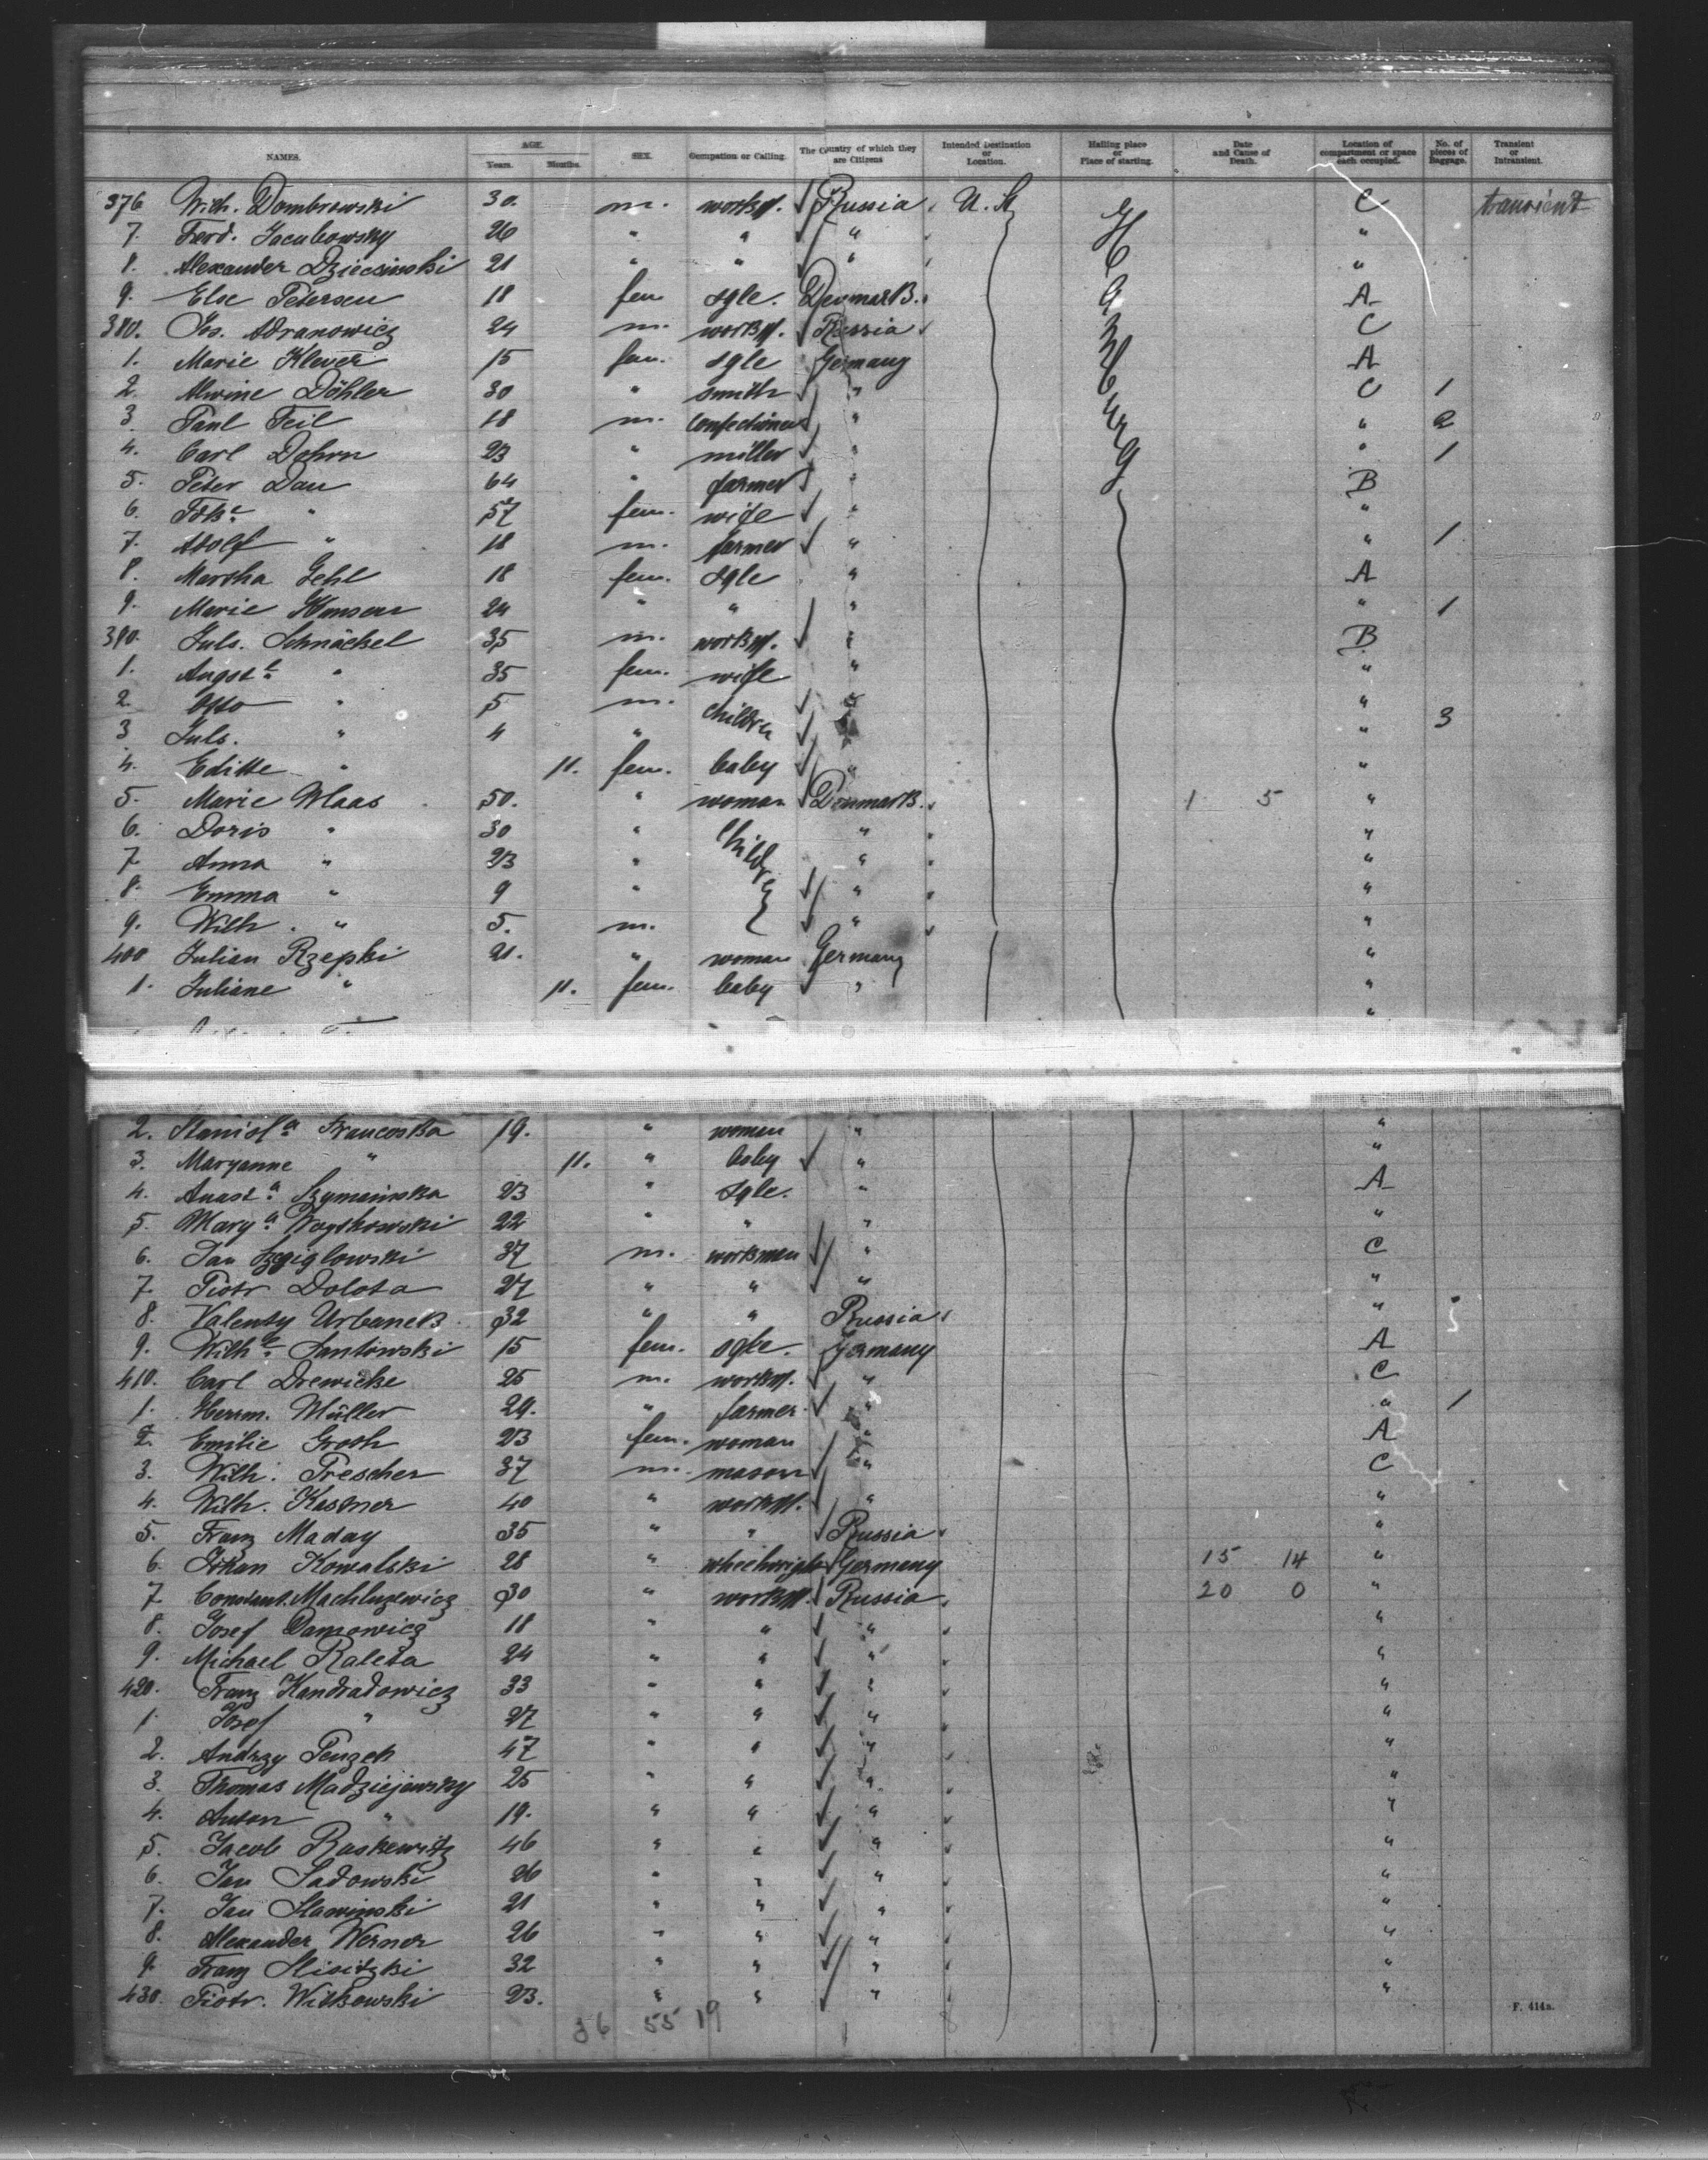 NAMES. AGE. Years. Months. SEX. Occupation or Calling. The Country of which they are Citizens Intended Destination or Location. Hailing place or Place of starting. Date and Cause of Death. Location of compartment or space each occupied. No. of pieces of Baggage. Transient or Intransient.
376 Wilh. Dombrowski 30. m. workm. Russia U. St. Hamburg C transient
7. Ferd. Jacubowsky 26 " " " "
8. Alexander Dziecsinski 21 " " " "
9. Else Petersen 18 fem sgle. Denmark. A
380. Jos. Adranowicz 24 m. workm. Russia C
1. Marie Klever 15 fem. sgle Germany A
2. Alwine Döhler 30 " smith " C 1
3. Paul Feil 18 m. confectioner " " 2
4. Carl Dohrn 23 " miller " " 1
5. Peter Dau 64 " farmer " B
6. " 57 fem. wife " "
7. Adolf " 18 m. farmer " " 1
8. Martha Gehl 18 fem. sgle " A
9. Marie Hansen 24 " " " " 1
390. Juls. Schnäckel 35 m. workm. " B
1. Augste " 35 fem. wife " "
2. Otto " 5 m. children " "
3 Juls. " 4 " " " 3
4. Editte " 11. fem. baby " "
5. Marie Maas 50. " woman Denmark. 1 5 "
6. Doris " 30 " children " "
7. Anna " 23 " " "
8. Emma " 9 " " "
9. Wilh. " 5. m. " "
400 Julian Rzepki 21. " woman Germany "
1. Juliane " 11. fem. baby " "
2. Stanisla Francoska 19. " woman " "
3. Maryanne " 11. " baby " "
4. Anasta Szymainska 23 " sgle. " A
5. Marya Woytkowski 22 " " " "
6. Jan Szgiglowski 37 m. workmen " C
7. Piotr Dolota 27 " " " "
8. Valenty Urbanek 32 " " Russia "
9. Wilhe. Santowski 15 fem. sgle. Germany A
410. Carl Drewicke 25 m. workm. " C
1. Herrm. Müller 29. " farmer. " " 1
2. Emilie Groth 23 fem. woman " A
3. Wilh. Prescher 37 m. mason " C
4. Wilh. Kastner 40 " workm. " "
5. Franz Maday 35 " " Russia "
6. Johan Kowalski 28 " wheelwright Germany 15 14 "
7. Constant. Machluzewicz 30 " workm. Russia 20 0 "
8. Josef Damowicz 18 " " " "
9. Michael Raleta 24 " " " "
420. Franz Kandradowicz 33 " " " "
1. Josef " 27 " " " "
2. Andrzy Penzek 47 " " " "
3. Thomas Madziejewsky 25 " " " "
4. Anton " 19. " " " "
5. Jacob Ruskewitz 46 " " " "
6. Jan Sadowski 26 " " " "
7. Jan Slawinski 21 " " " "
8. Alexander Werner 26 " " " "
9. Franz Slisitzki 32 " " " "
430. Piotr. Witkowski 23. " " " "
36 55 19
F. 414a.